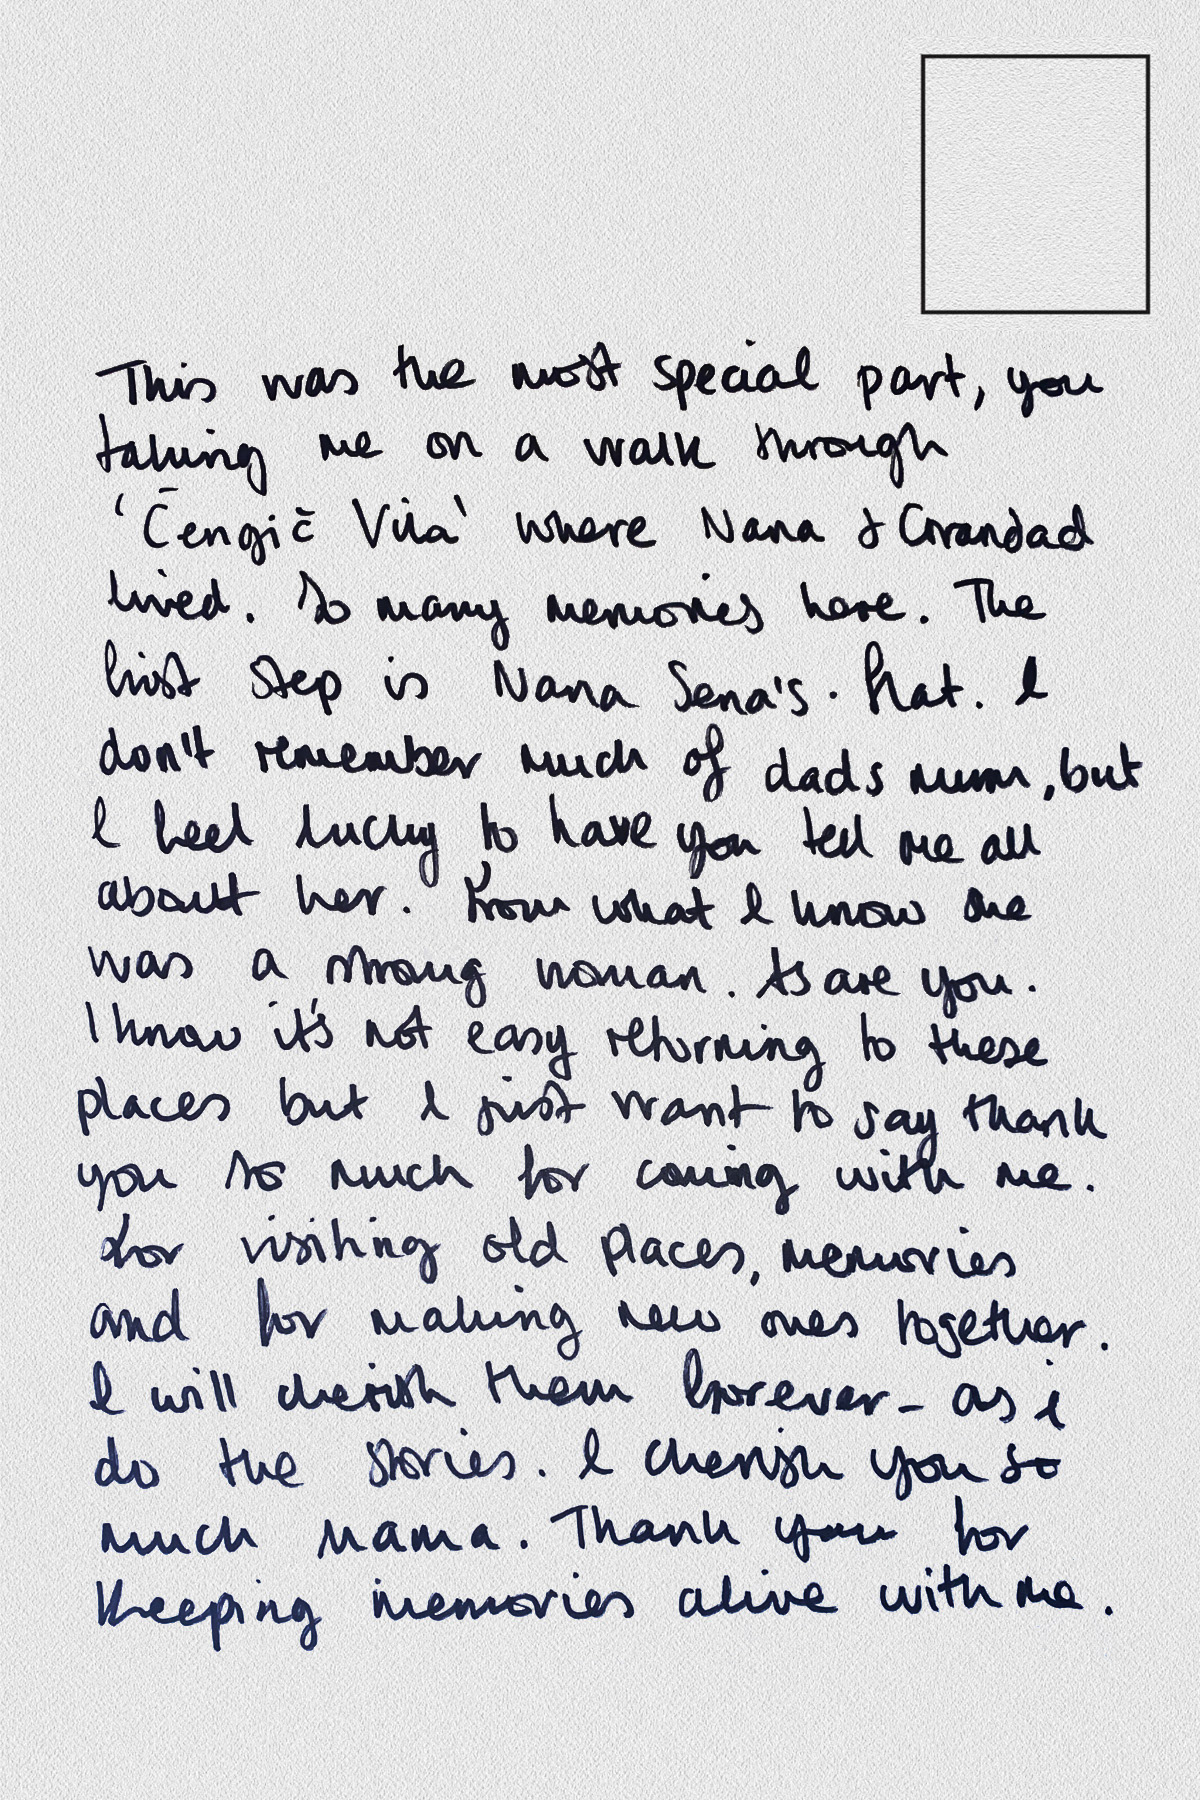 This was the most special part, you
taking me on a walk through
'Čengič Vila' where Nana & Grandad
lived. So many memories here. The
first step is Nana Sena's. flat. I
don't remember much of dads mum, but
I feel lucky to have you tell me all
about her. From what I know she
was a strong woman. As are you.
I know it's not easy returning to these
places but I just want to say thank
you so much for coming with me.
For visiting old places, memories
and for making new ones together.
I will cherish them forever - as i
do the stories. I cherish you so
much mama. Thank you for
keeping memories alive with me.